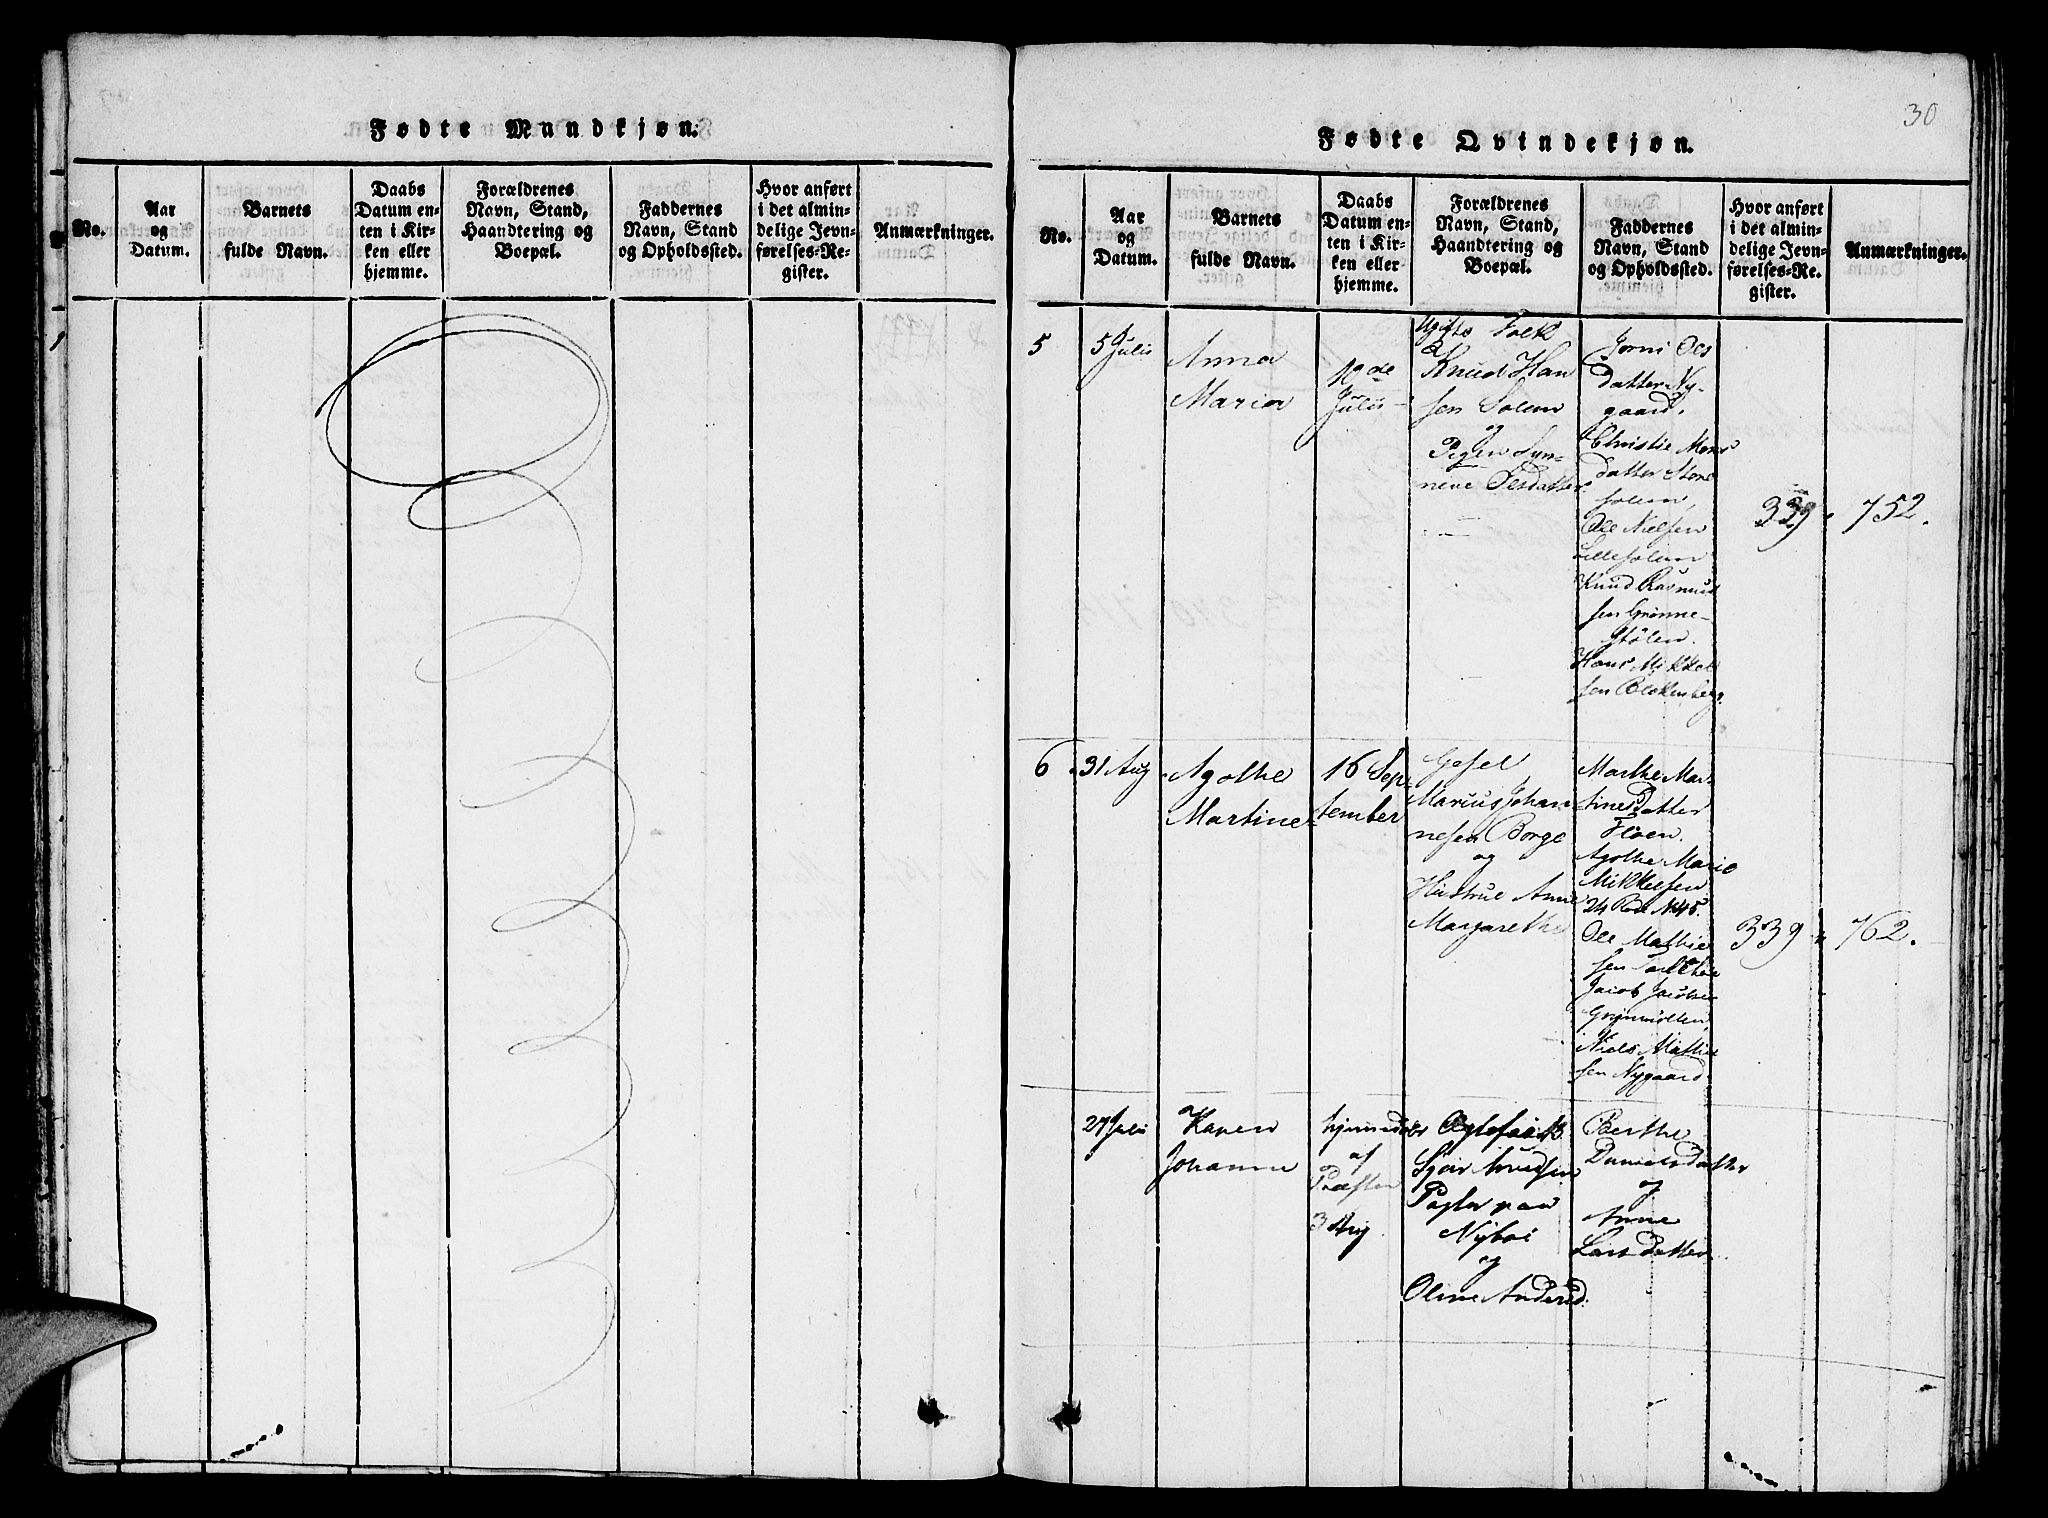 Fødte Mandkjøn.
No.
Aar
og
Datum.
Barnets
fulde Navn.
Daabs
Datum en-
ten i Kir-
ken eller
hjemme.
Forældrenes
Navn, Stand,
Haandtering og
Boepæl.
Faddernes
Navn, Stand
og Opholdssted.
Hvor anført
i det almin-
delige Jevn-
førelses-Re-
gister.
Anmærkninger.
30
Fødte Qvindekjøn.
No.
Aar
og
Datum.
Barnets
fulde Navn.
Daabs
Datum en-
ten i Kir-
ken eller
hjemme.
Forældrenes
Navn, Stand,
Haandtering og
Boepæl.
Faddernes
Navn, Stand
og Opholdssted.
Hvor anført
i det almin-
delige Jevn-
førelses-Re-
gister.
Anmærkninger.
5
5 Julii
Anna
Maria
Julii
Ugifte Folk
Knud Han
sen Solem
og
Pigen Syn-
neve Olsdatter
Jorni Ols
datter Ny-
gaard,
Christie Mons
datter Store
solem,
Ole Nielsen
Lillesolem
Knud Rasmus
sen Grønne-
stølen.
Hans Mikkel
sen Blekenberg.
339.
752.
6.
31 Aug.
Agothe
Martine
16 Sep-
tember
Marius Johan
nesen Borge
og
Hustrue Anne
Margarethe
Marthe Mar-
tinesdatter
Fløen.
Agothe Marie
Mikkelsen
24 Rode No 45.
Ole Mathie
sen
Jacob Jacobse
Niels Mathie
sen Nygaard
339
762.
27 Julii
Karen
Johanne
hjemmedøbt
af
Præsten
3 Aug
Knudsen
paa
Nybøe
og
Oline Andersd:
Berthe
Danielsdatter
og
Anne
Larsdatter